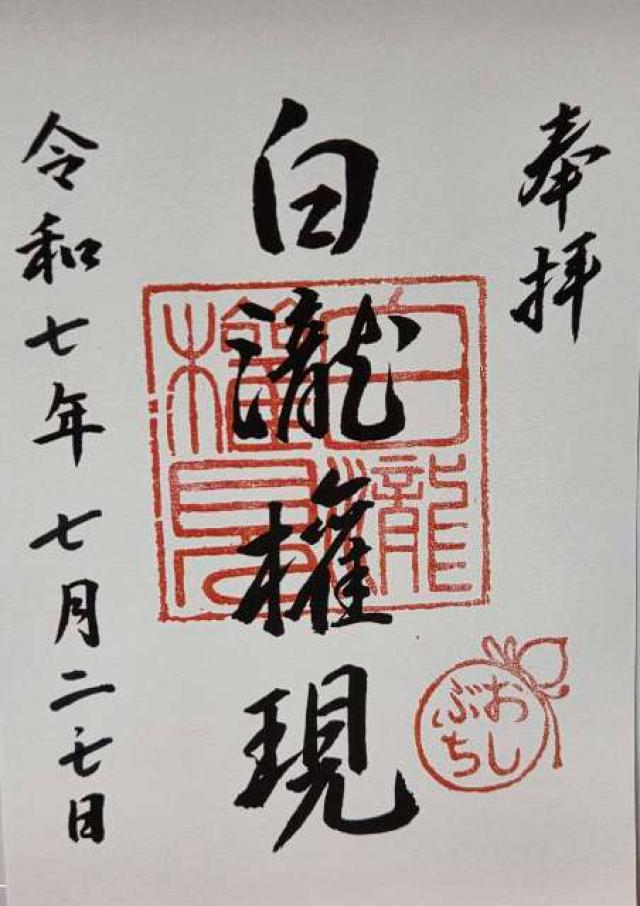 奉拝
白瀧權現
白瀧
權現
おし
ぶち
令和七年七月二七日